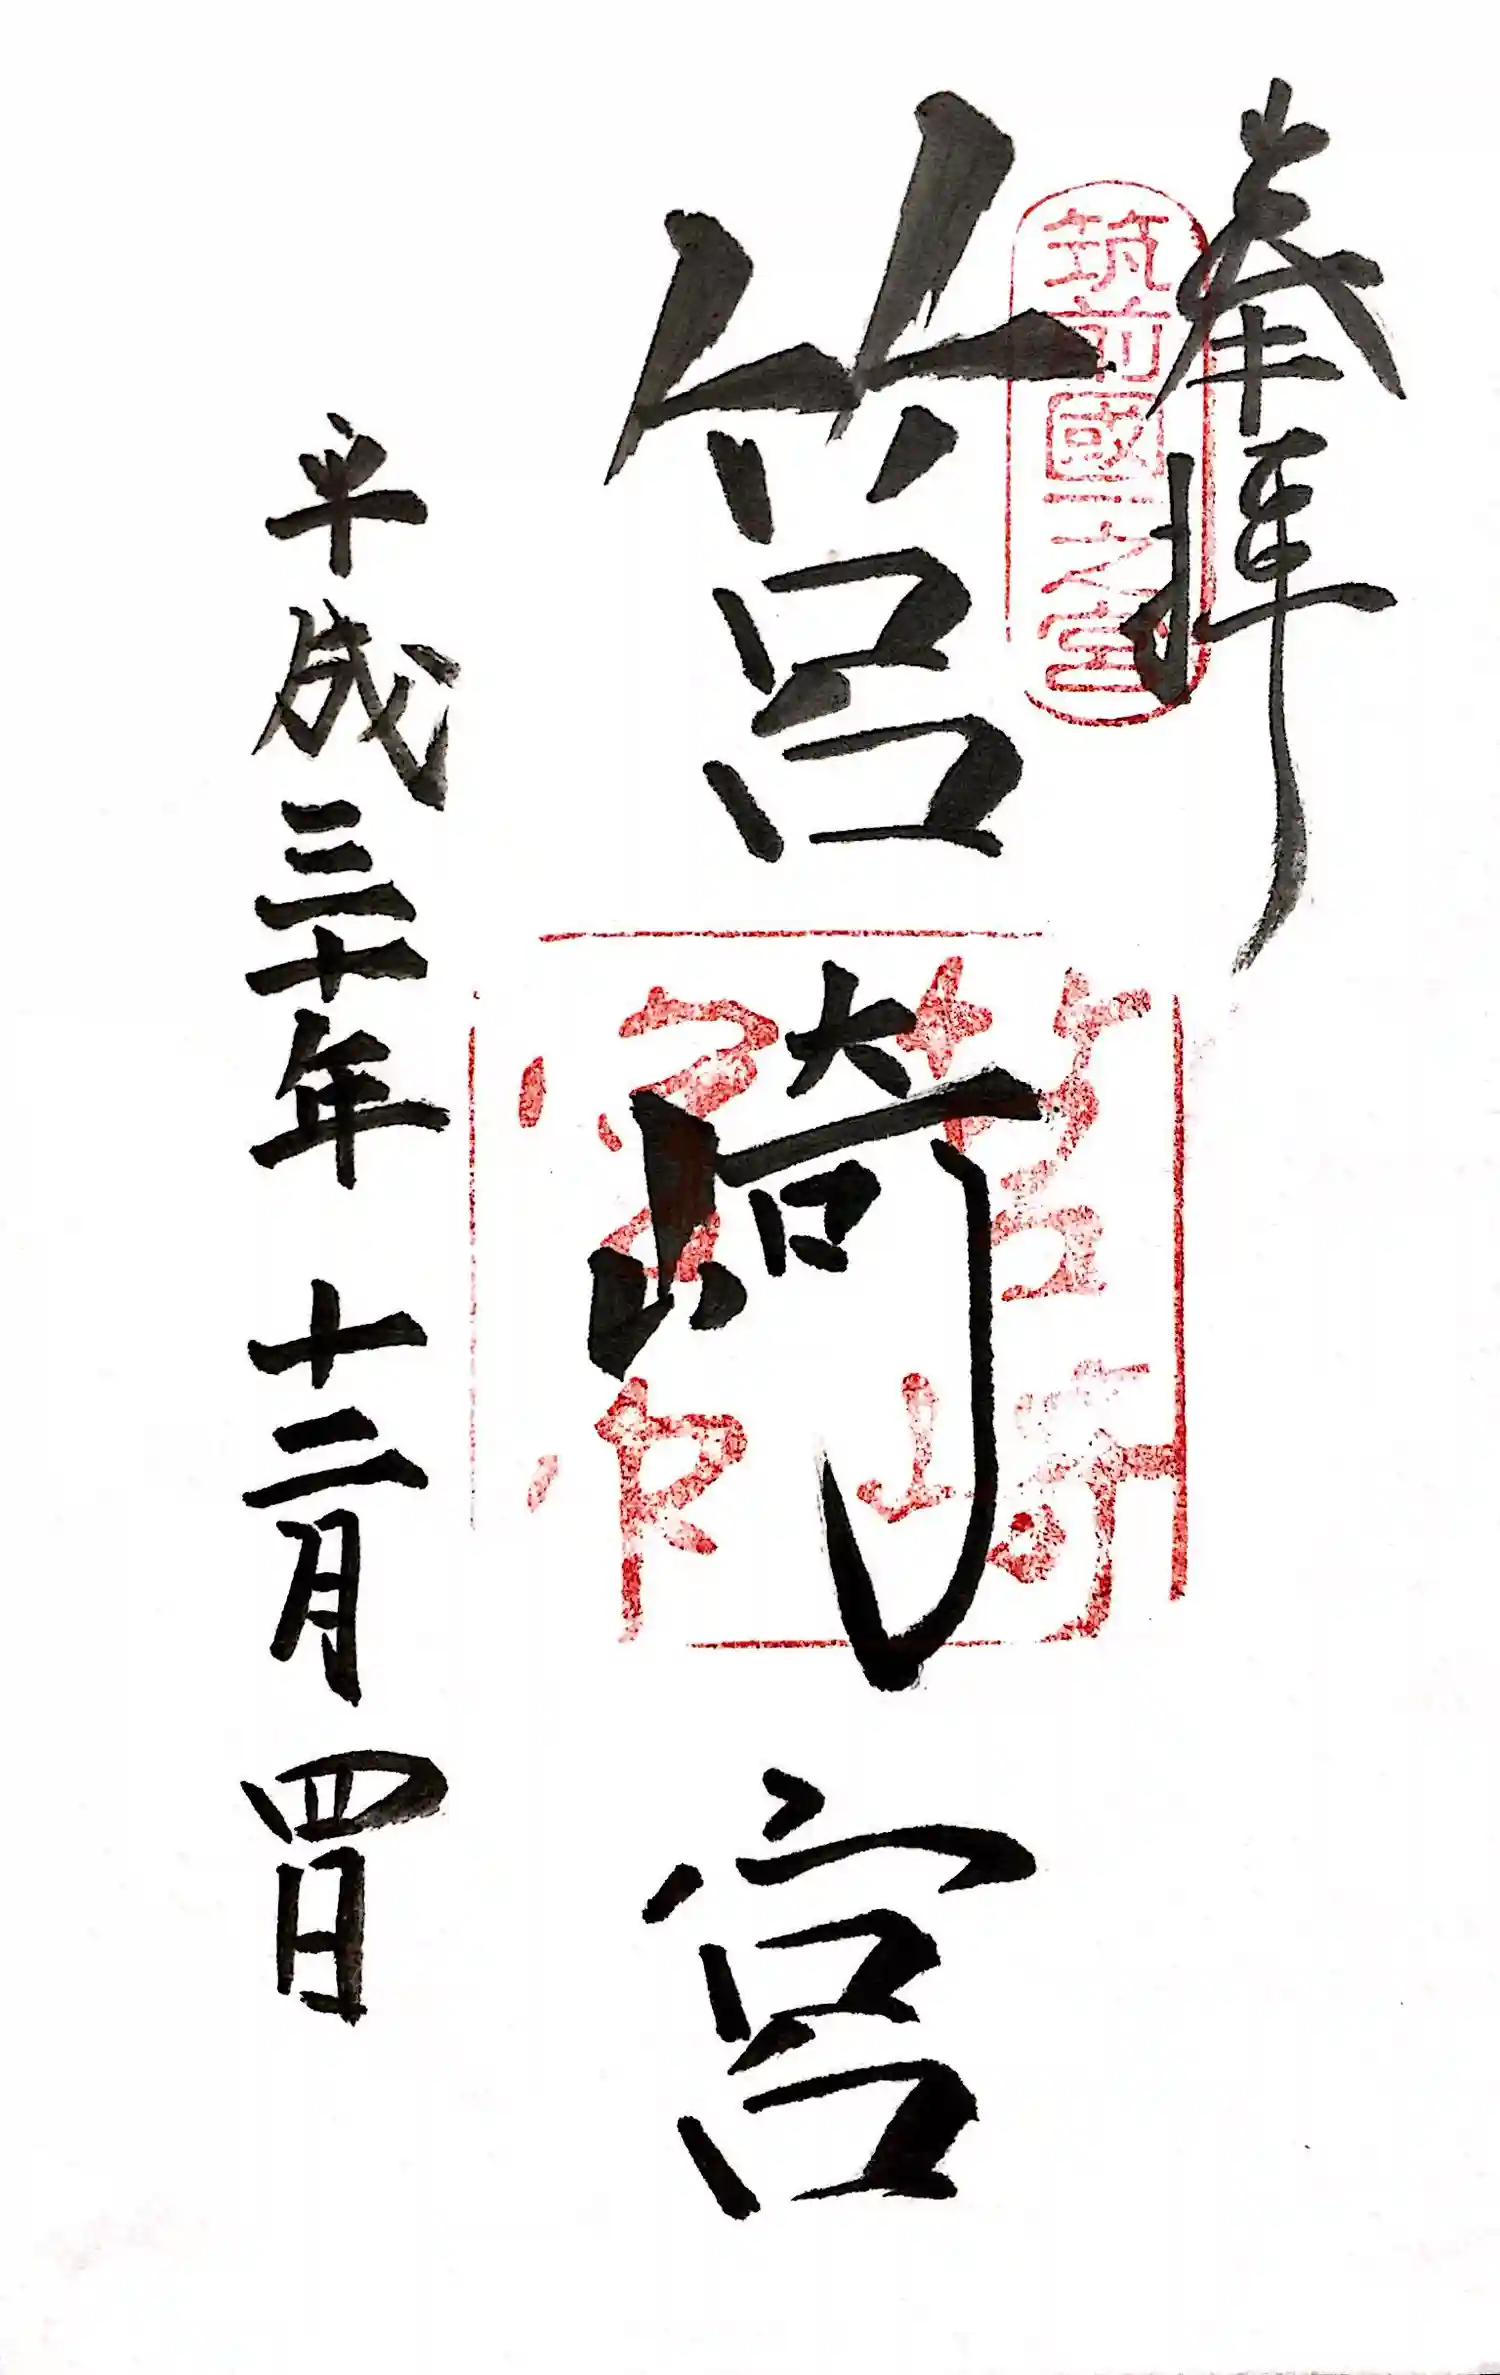 奉拝
筑前國一之宮
筥崎宮
筥崎
宮印
平成三十年 十二月 四日